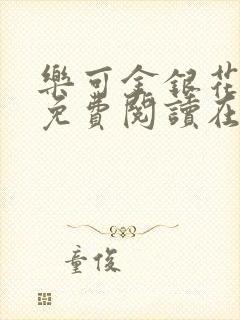 樂可金銀花
免費閱讀在
童俊